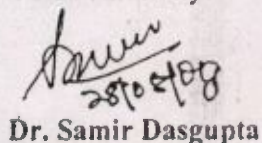 Samir
28/08/08
Dr. Samir Dasgupta